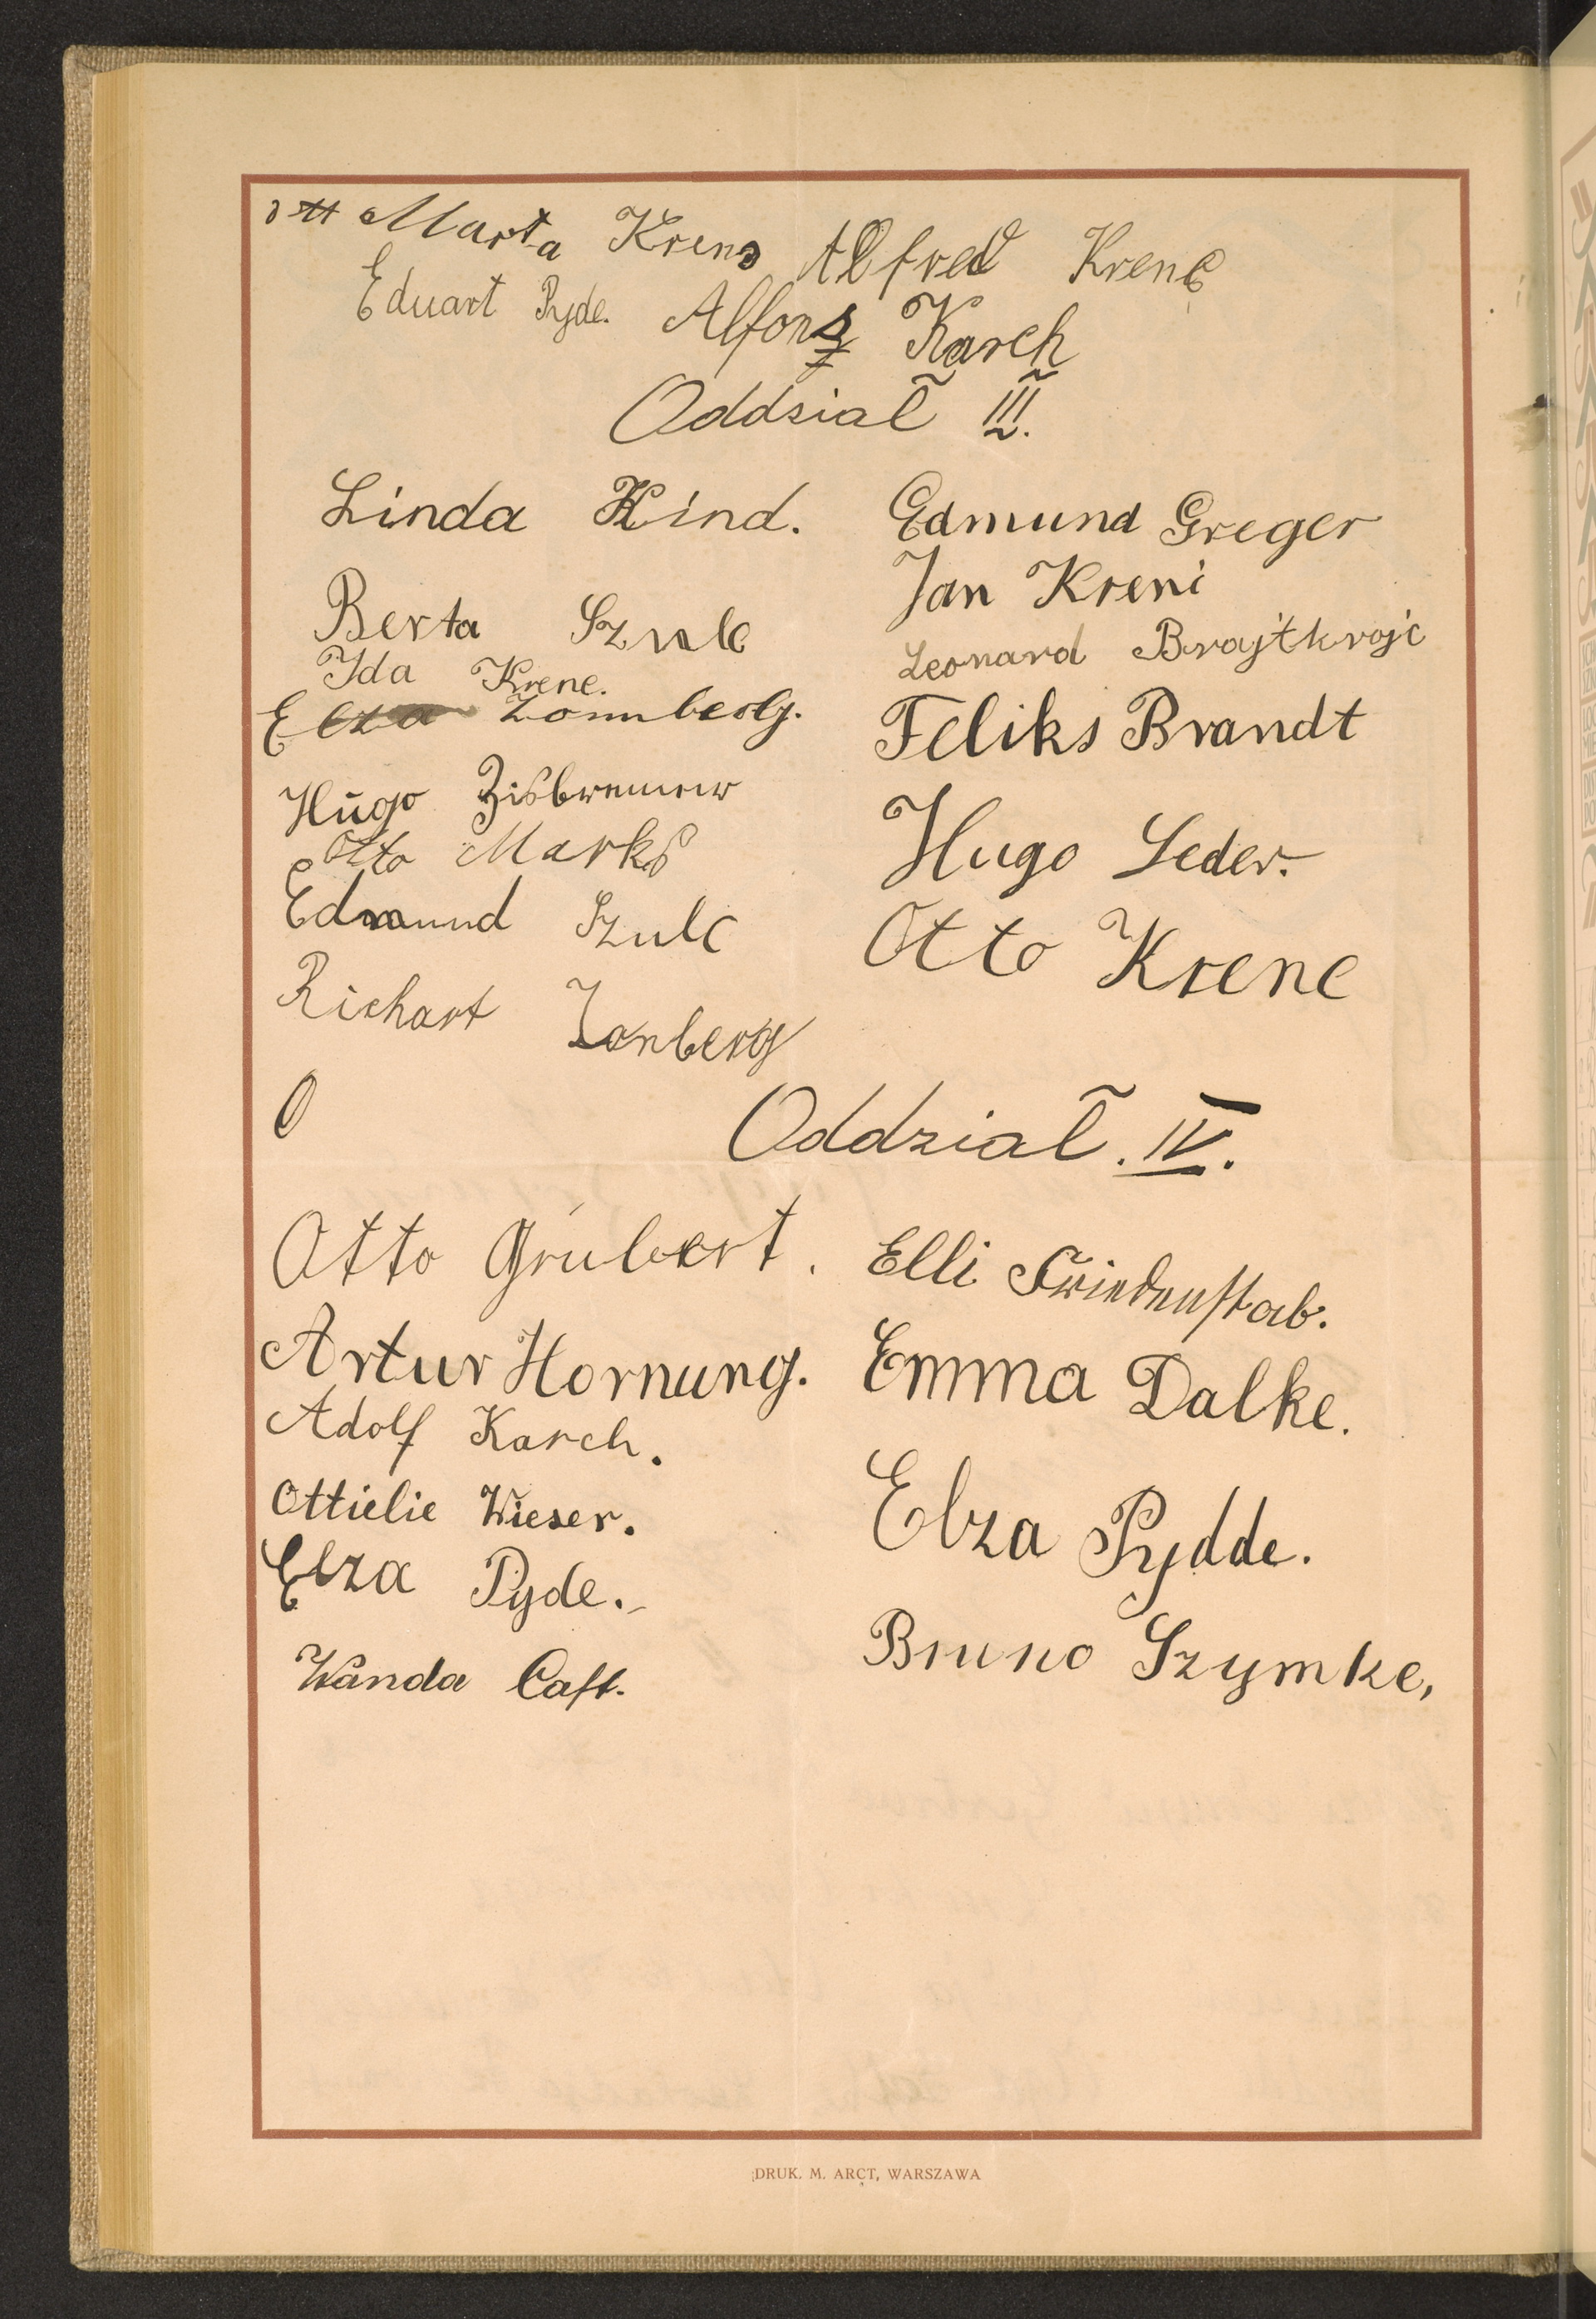 Marta Krenc Alfred Krenc
Eduart Pyde. Alfons Karch
Oddział III.
Linda Kind.
Berta Szulc
Ida Krenc.
Elza Zonnberg.
Hugo
Otto Marks
Edmund Szulc
Richart Zonberg
Edmund Greger
Jan Kreni
Leonard Brajtkrajc
Feliks Brandt
Hugo Leder.
Otto Krenc
O
Oddział. IV.
Otto Grubert.
Artur Hornung.
Adolf Karch.
Ottielie Wieser.
Elza Pyde.
Wanda Cast.
Elli Friedenstab.
Emma Dalke.
Elza Pydde.
Bruno Szymke,
DRUK. M. ARCT, WARSZAWA